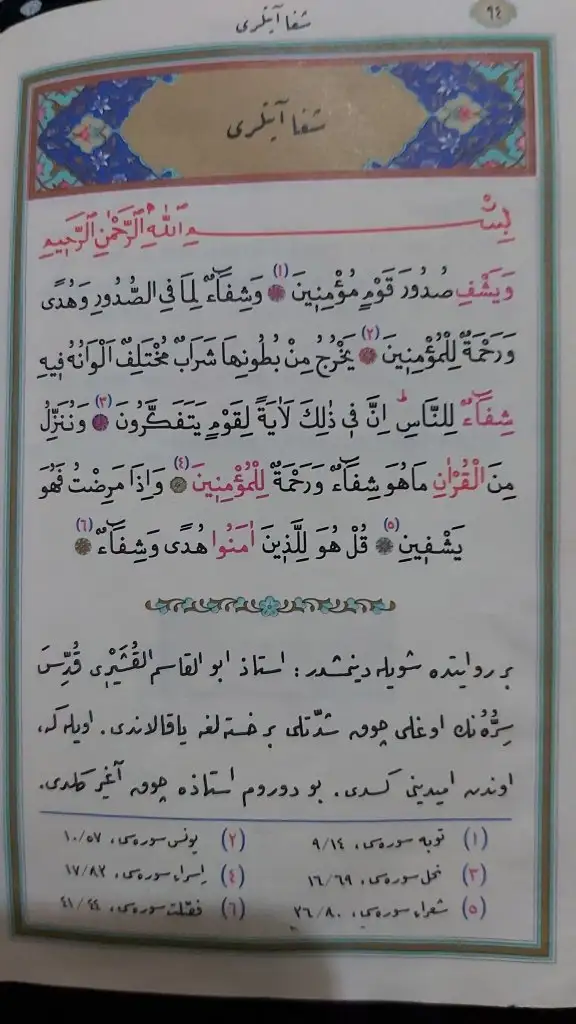 شفا آيتلری
٩٤
شفا آيتلری
بِسْمِ اللّٰهِ الرَّحْمٰنِ الرَّحٖيمِ
وَيَشْفِ صُدُورَ قَوْمٍ مُؤْمِنٖينَ (١) ۞ وَشِفَٓاءٌ لِمَا فِى الصُّدُورِ وَهُدًى
وَرَحْمَةٌ لِلْمُؤْمِنٖينَ (٢) ۞ يَخْرُجُ مِنْ بُطُونِهَا شَرَابٌ مُخْتَلِفٌ اَلْوَانُهُ فٖيهِ
شِفَٓاءٌ لِلنَّاسِ ۜ اِنَّ فٖى ذٰلِكَ لَاٰيَةً لِقَوْمٍ يَتَفَكَّرُونَ (٣) ۞ وَنُنَزِّلُ
مِنَ الْقُرْاٰنِ مَاهُوَ شِفَٓاءٌ وَرَحْمَةٌ لِلْمُؤْمِنٖينَ (٤) ۞ وَاِذَا مَرِضْتُ فَهُوَ
يَشْفٖينِ (٥) ۞ قُلْ هُوَ لِلَّذٖينَ اٰمَنُوا هُدًى وَشِفَٓاءٌ (٦) ۞
بر روايتده شويله دينمشدر : استاذ ابو القاسم القُشَيْرٖى قُدِّسَ
سِرُّهُ نك اوغلی چوق شدّتلی بر خسته لغه ياقالاندی. اويله كه،
اوندن اميدينی كسدی. بو دوروم استاذه چوق آغير كلدی.
(١) توبه سوره‌سی، ٩/١٤ (٢) يونس سوره‌سی، ١٠/٥٧
(٣) نحل سوره‌سی، ١٦/٦٩ (٤) اسراء سوره‌سی، ١٧/٨٢
(٥) شعراء سوره‌سی، ٢٦/٨٠ (٦) فصّلت سوره‌سی، ٤١/٤٤